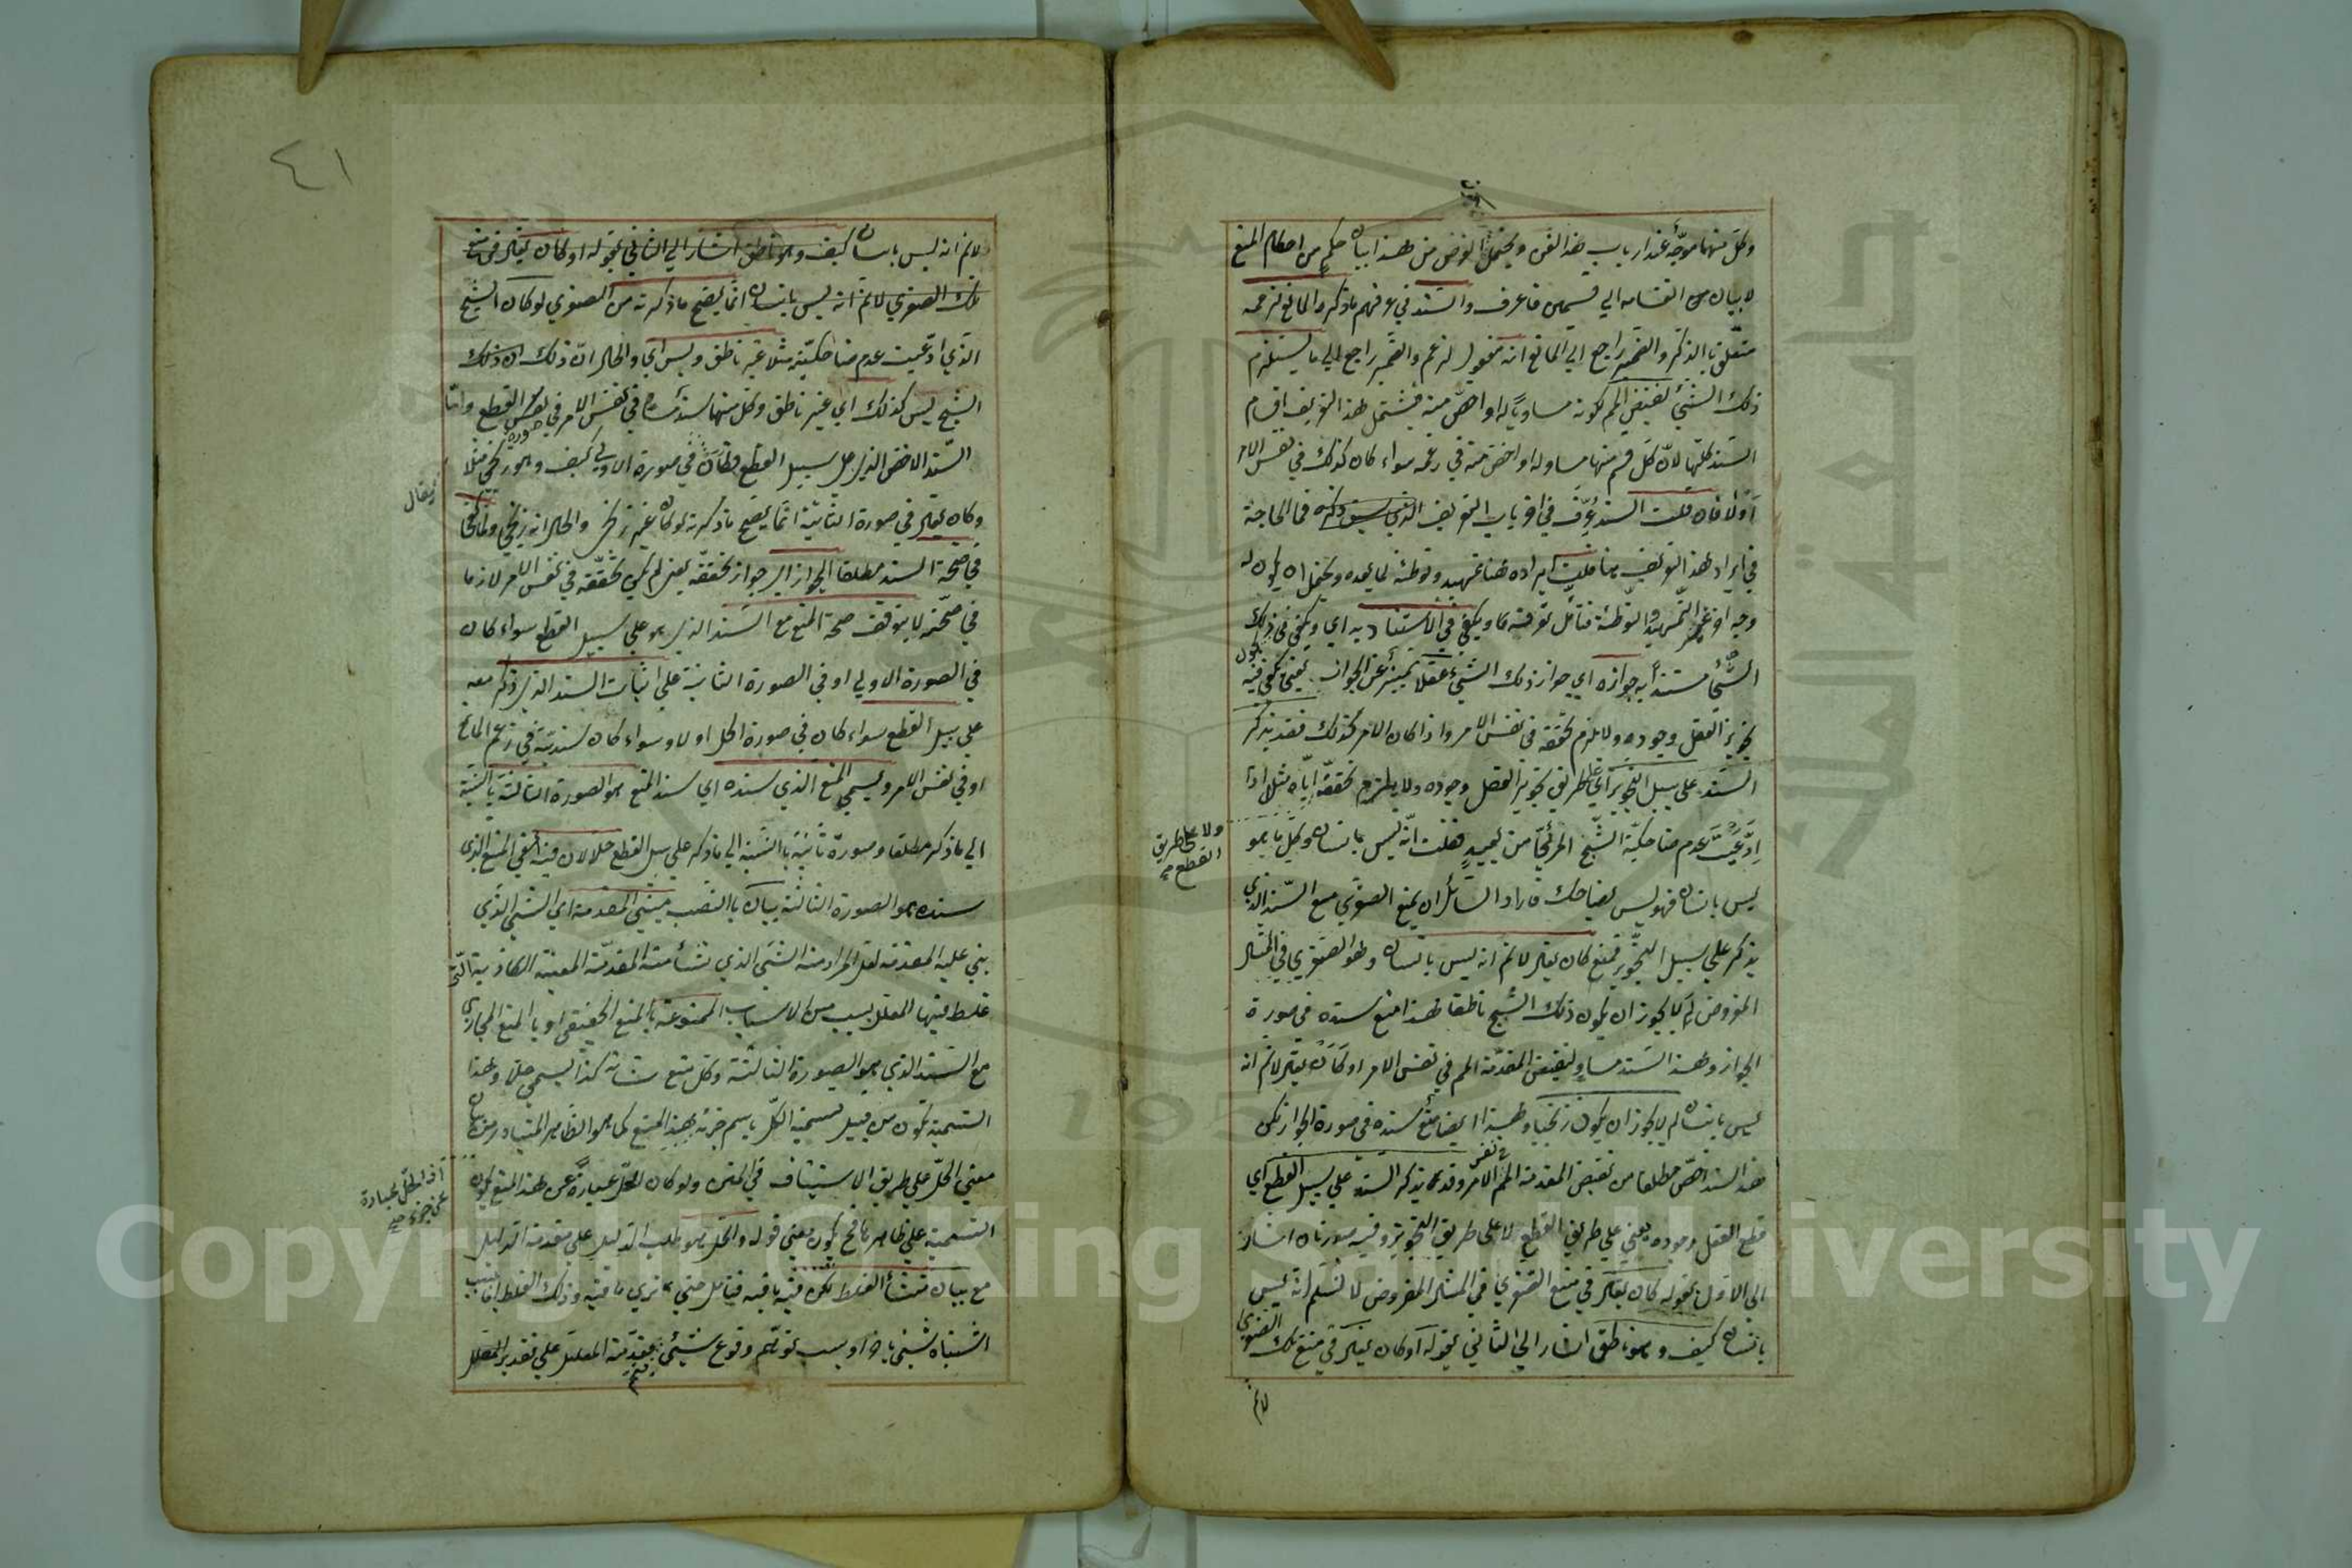 وكل منها موجه عند ارباب هذا الفن ويحتمل الغرض من هذا بيان حكم من احكام المنع
لا بيان انقسامه الي قسمين فاعرف والسند في عرفهم ما ذكره المانع لزعمه
متعلق بالذكر والضمير راجع الي المانع انه مفعول لزعم والضمير راجع الي ما يستلزم
ذلك الشئ لنقيض المم كونه مساويا له او اخص منه فيشتمل هذا التعريف اقسام
السند كلها لان كل قسم منها مساو له او اخص منه في زعمه سواء كان كذلك في نفس الامر
اولا فان قلت السند عرف في اقربات التعريف الذي سبق ذكره فما الحاجة
في ايراد هذا التعريف هنا قلت ايراده هنا تمهيد وتوطئة لما بعده ويحتمل ان يكون له
وجه اخر غير التمهيد والتوطئة فتأمل تعرفه ويكفي في الاستناد به اي ويكفي في ذلك
الشئ مستندا به جوازه اي جواز ذلك الشئ عقلا تمييز عن الجواز يعني يكفي فيه
تجويز العقل وجوده ولا يلزم تحققه في نفس الامر واذا كان الامر كذلك فقد يذكر
السند علي سبيل التجويز اي علي طريق تجويز العقل وجوده ولا يلتزم تحققه اياه مثلا اذا
ولا علي طريق القطع
ادعيت عدم ضاحكية الشبح المرئي من بعيد فقلت انه ليس بانسان وكل ما هو
ليس بانسان فهو ليس بضاحك فاراد السائل ان يمنع الصغري مع السند الذي
يذكر علي سبيل التجويز فمنع كان يقال لا نم انه ليس بانسان وهو الصغري في المثال
المفروض لم لا يجوز ان يكون ذلك الشبح ناطقا فهذا منع سنده في صورة
الجواز وهذا السند مساو لنقيض المقدمة المم في نفس الامر او كان يقال لا نم انه
ليس بانسان لم لا يجوز ان يكون زنجيا وهذا ايضا منع سنده في صورة الجواز لكن
هذا السند اخص مطلقا من نقيض المقدمة المم في نفس الامر وقد يذكر السند علي سبيل القطع اي
قطع العقل وجوده يعني علي طريق القطع لا علي طريق التجويز وفيه صورتان اشار
الي الاول بقوله كان يقال في منع الصغري في المثال المفروض لا نسلم انه ليس
بانسان كيف وهو ناطق اشار الي الثاني بقوله او كان يقال في منع تلك الصغري
لا نم
٤١
لا نم انه ليس بانسان كيف وهو ناطق اشار الي الثاني بقوله او كان يقال في منع
تلك الصغري لا نم انه ليس بانسان انما يصح ما ذكرته من الصغري لو كان الشبح
الذي ادعيت عدم ضاحكيته مثلا غير ناطق وليس اي والحال ان ذلك
الشبح ليس كذلك اي غير ناطق وكل منها سند مساو في نفس الامر في صورة القطع واما
السند الاخص الذي علي سبيل القطع في صورة الاولي كيف وهو زنجي مثلا
فيقال
وكان يقال في صورة الثانية انما يصح ما ذكرته لو كان غير زنجي والحال انه زنجي ولما كفي
في صحة السند مطلقا الجواز اي جواز تحققه يعني لم يكن تحققه في نفس الامر لازما
في صحته لا يتوقف صحة المنع مع السند الذي هو علي سبيل القطع سواء كان
في الصورة الاولي او في الصورة الثانية علي اثبات السند الذي ذكر معه
علي سبيل القطع سواء كان في صورة الحل اولا وسواء كان سنديته في زعم المانع
او في نفس الامر ويسمي المنع الذي سنده اي سند المنع هو الصورة الثالثة بالنسبة
الي ما ذكر مطلقا وصورة ثانية بالنسبة الي ما ذكر علي سبيل القطع حلا لان فيه يعني المنع الذي
سنده هو الصورة الثالثة بيان بالنصب مبني المقدمة اي الشئ الذي
بني عليه المقدمة لعل المراد منه الشئ الذي نشأ منه المقدمة المعينة الكاذبة التي
غلط فيها المعلل بسبب من الاسباب الممنوعة بالمنع الحقيقي او بالمنع المجازي
مع السند الذي هو الصورة الثالثة وكل منع شانه كذا يسمي حلا وهذا
التسمية تكون من قبيل تسمية الكل باسم جزئه بهذا المنع كما هو الظاهر المتبادر من بيان
معني الحل علي طريق الاستيناف في المتن ولو كان الحل عبارة عن هذا المنع لكون
اذ الحل عبارة عن جزء
التسمية علي ظاهرها فح يكون معني قوله والحل هو طلب الدليل علي مقدمة الدليل
مع بيان منشأ الغلط لكن فيه ما فيه فتأمل حتي تري ما فيه وذلك الغلط اما بسبب
اشتباه شئ باخر او بسبب توهم وقوع شئ بمقدمة المعلل علي تقدير المعلل